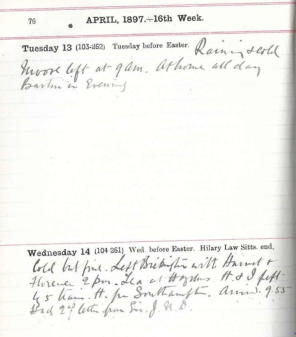 76
APRIL, 1897.—16th Week.
Tuesday 13 (103-262) Tuesday before Easter. Rainy & cold
Moore left at 9 am. At home all day
in Evening
Wednesday 14 (104-261) Wed. before Easter. Hilary Law Sitts. end.
Cold but fine. Left with Harriet &
Florence 2 pm. Tea at H & I left
by 5 train. H. for Southampton. Arrivd. 9.55
2nd letter from Sir J.